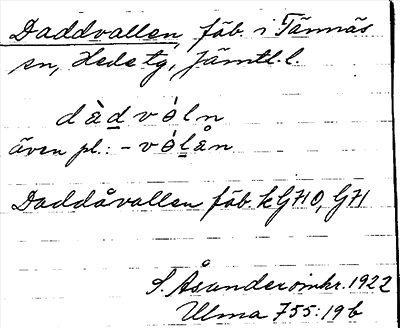 Daddvallen, fäb. i Tännäs
sn, Hede tg, Jämtl. l.
dàdvóln
även pl.: -vólån
Daddåvallen fäb. k G710, G71
S. Åsander omkr. 1922
Ulma 755:19b